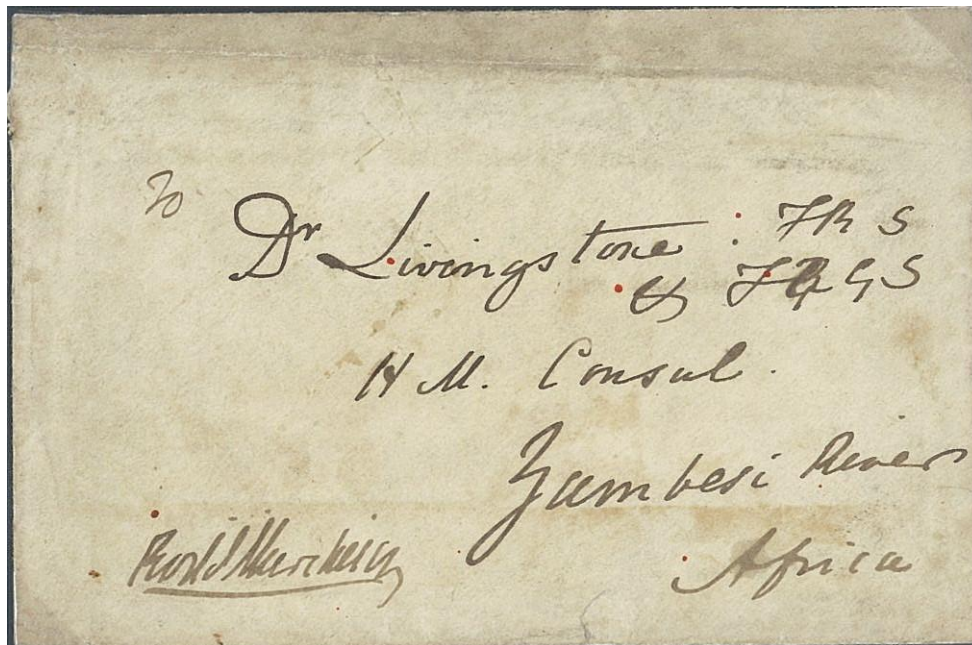 To
Dr Livingstone : FRS
& FRGS
H M. Consul.
Zambesi River
Africa
Rod I Murchison